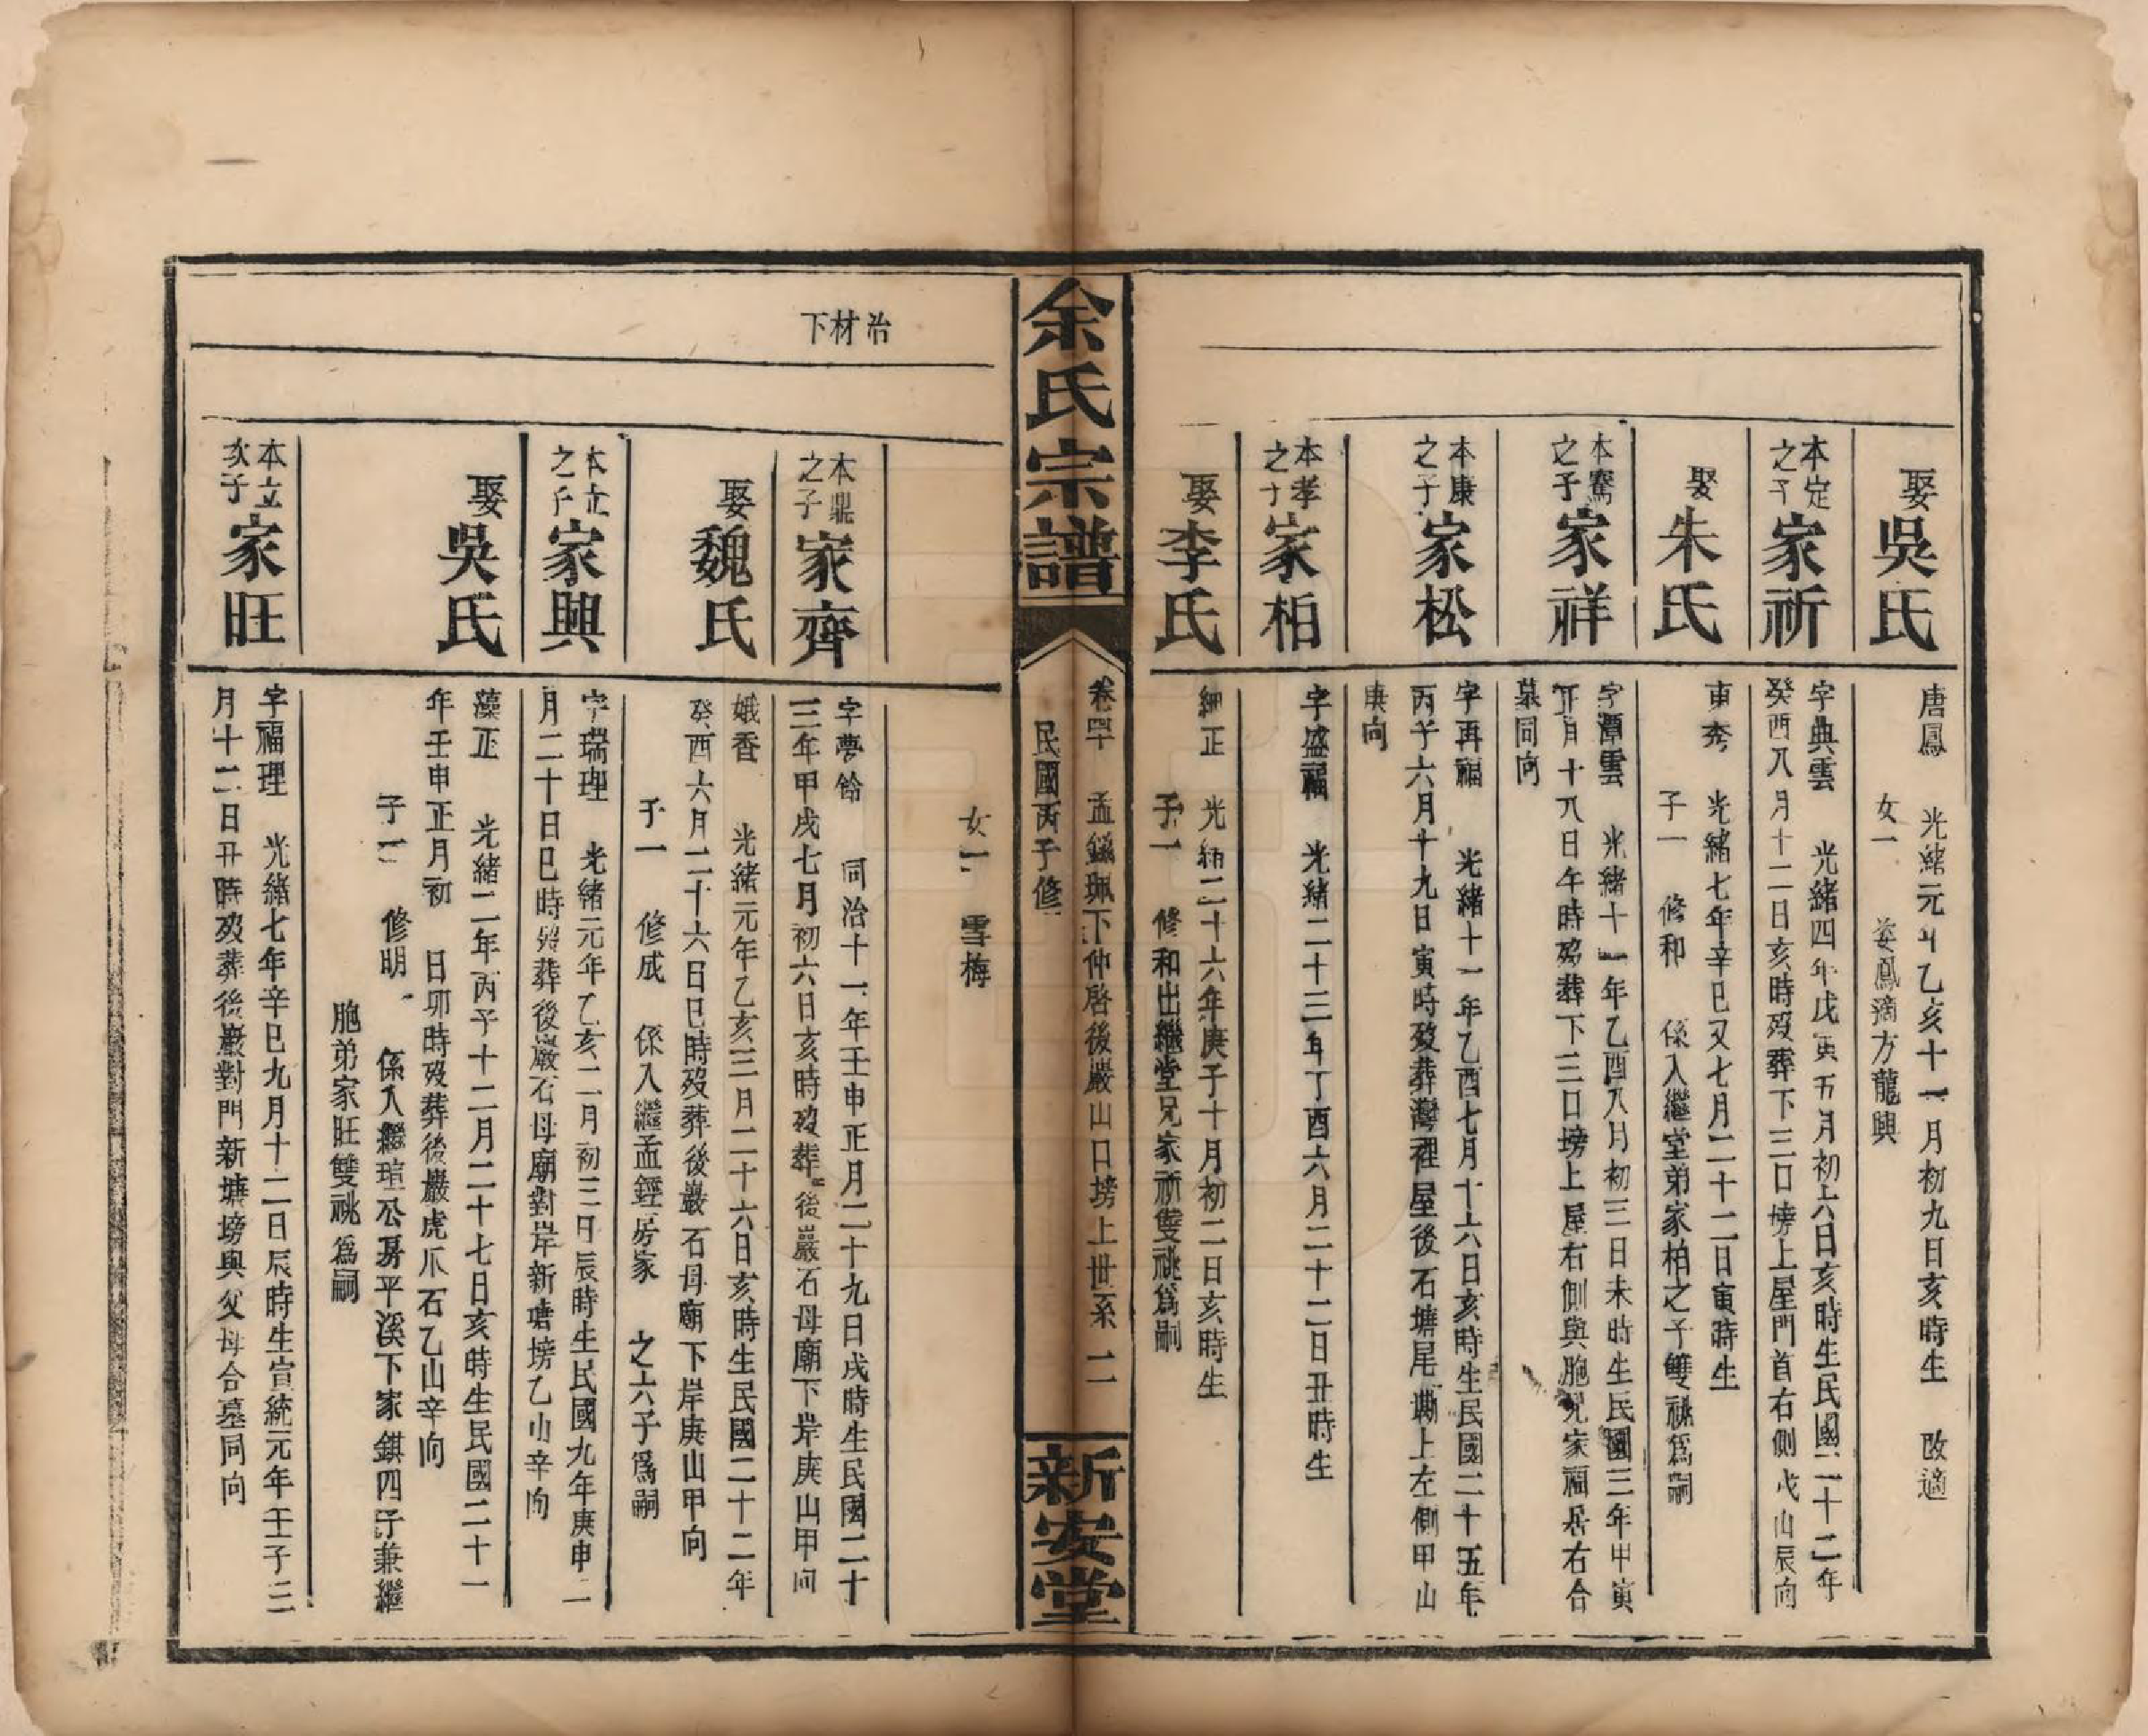 娶吳氏
唐鳳 光緒元年乙亥十一月初九日亥時生 改適
女一 姿鳳適方龍興
本定之子家祈
字典雲 光緒四年戊寅五月初六日亥時生民國二十二年
癸酉八月十二日亥時歿葬下三口塝上屋門首右側戊山辰向
娶朱氏
東秀 光緒七年辛巳又七月二十二日寅時生
子一 修和 係入繼堂弟家柏之子雙祧爲嗣
本騫之子家祥
字潭雲 光緒十一年乙酉八月初三日未時生民國三年甲寅
正月十八日午時歿葬下三口塝上屋右側與胞兄家福居右合
墓同向
本康之子家松
字再福 光緒十一年乙酉七月十六日亥時生民國二十五年
丙子六月十九日寅時歿葬灣裡屋後石塘尾墈上左側甲山
庚向
本孝之子家柏
字盛福 光緒二十三年丁酉六月二十二日丑時生
娶李氏
細正 光緒二十六年庚子十月初二日亥時生
子一 修和出繼堂兄家祈雙祧爲嗣
余氏宗譜
卷四十 孟鎡珮下仲啓後巖山口塝上世系 二
民國丙子修
新安堂
女一 雪梅
治材下
本鼎之子家齊
字夢飴 同治十一年壬申正月二十九日戌時生民國二十
三年甲戌七月初六日亥時歿葬後巖石母廟下岸庚山甲向
娶魏氏
娥香 光緒元年乙亥三月二十六日亥時生民國二十二年
癸酉六月二十六日巳時歿葬後巖石母廟下岸庚山甲向
子一 修成 係入繼孟鋞房家 之六子爲嗣
本立之子家興
字瑞理 光緒元年乙亥二月初三日辰時生民國九年庚申二
月二十日巳時歿葬後巖石母廟對岸新塘塝乙山辛向
娶吳氏
藻正 光緒二年丙子十二月二十七日亥時生民國二十一
年壬申正月初 日卯時歿葬後巖虎爪石乙山辛向
子一 修明 係入繼瑄公房平溪下家錤四子兼繼
胞弟家旺雙祧爲嗣
本立次子家旺
字福理 光緒七年辛巳九月十二日辰時生宣統元年壬子三
月十二日丑時歿葬後巖對門新塘塝與父母合墓同向